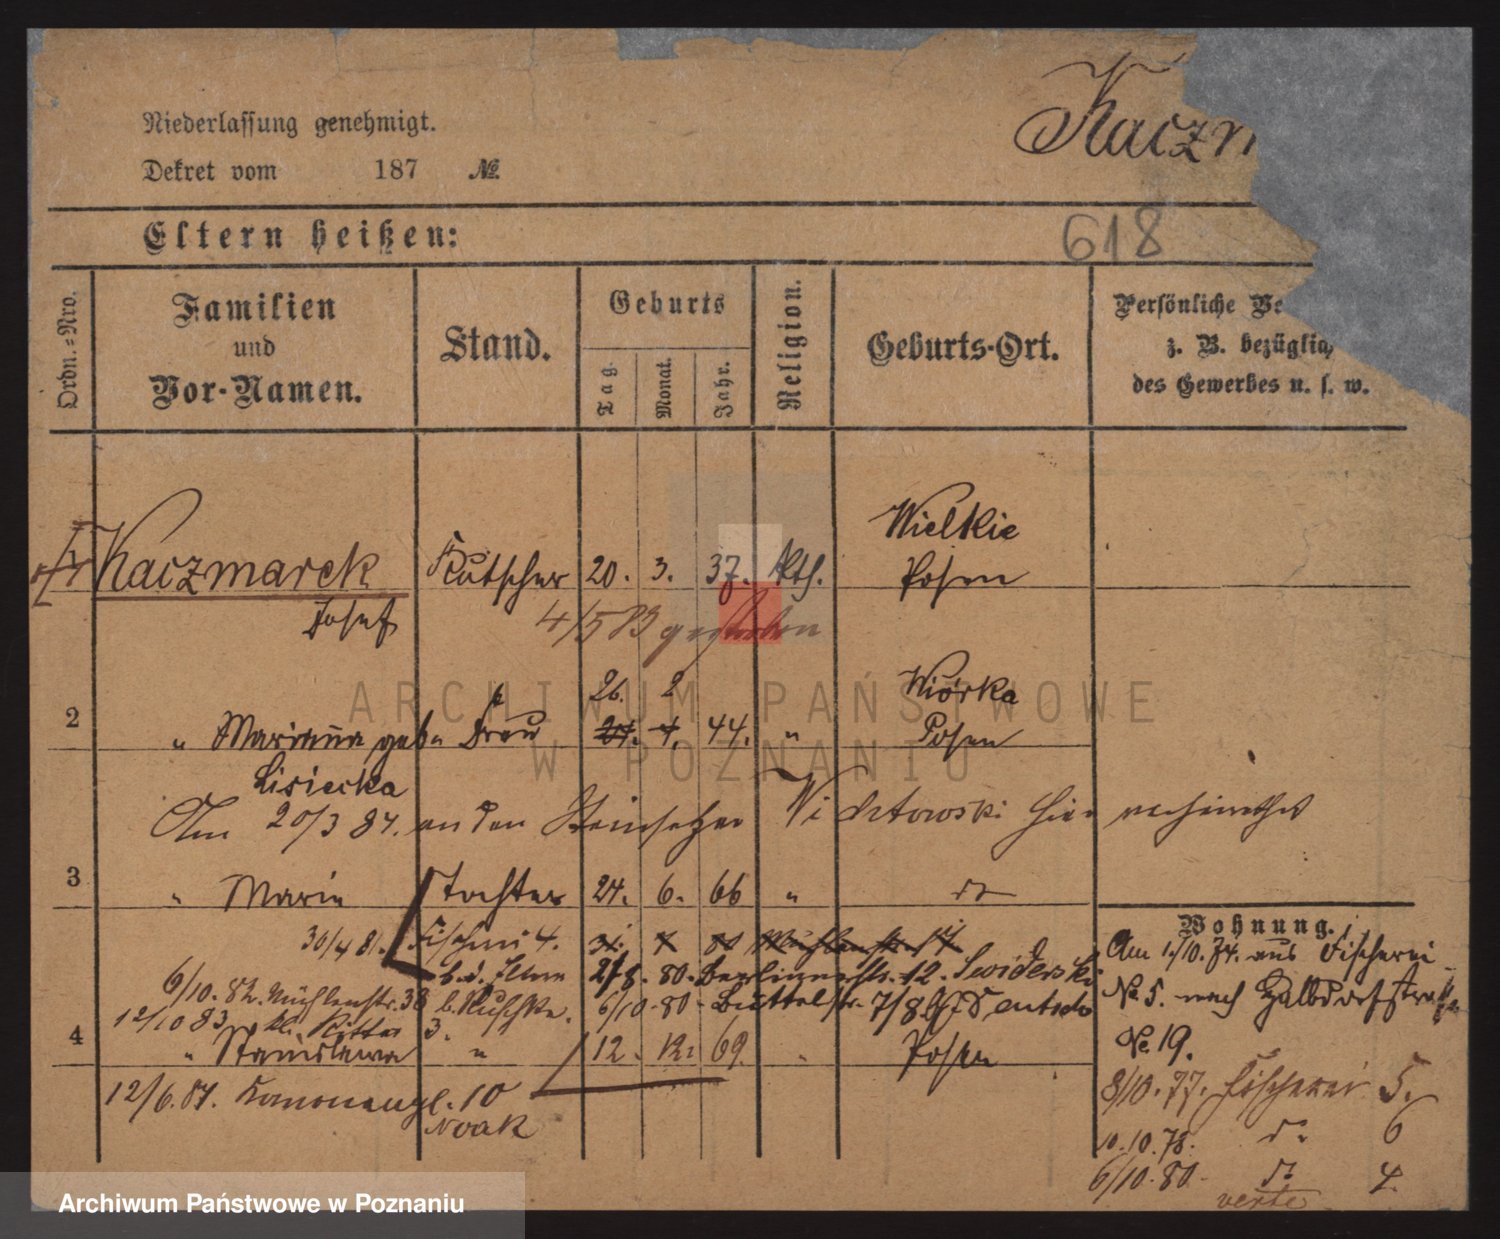 Kaczm
Niederlassung genehmigt.
Dekret vom 187 №
Eltern heißen:
618
Ordn.-Nro.
Familien und Vor-Namen.
Stand.
Geburts
Tag.
Monat.
Jahr.
Religion.
Geburts-Ort.
Persönliche Be
z. B. bezüglich
des Gewerbes u. s. w.
Wielkie
Kaczmarek Kutscher 20. 3. 37. kth. Posen
Josef
4/5 83 gestorben
26. 2 Wiórka
2 " Marianna geb. Frau 21. 4. 44. " Posen
Lisiecka
Am 20/3 84. an den Steinsetzer hier verheirathet
3 " Marie Tochter 24. 6. 66 " do
30/4 81. Fischerei 4.
b. d. Eltern 80. 12. Swiderski
6/10. 82. Mühlenstr. 38 6/10 80 Büttelstr. 7/8
12/10 83 kl. Ritter 3.
4 " Stanislawa " 12. 12. 69. " Posen
12/6. 84. Kanonenpl. 10
Noak
Wohnung.
Am 1./10. 74. aus Fischerei
№ 5. nach Halbdorfstraße
№ 19.
8/10. 77. Fischerei 5.
10.10.78. do 6
6/10. 80. do 4.
verte
ARCHIWUM PAŃSTWOWE
W POZNANIU
Archiwum Państwowe w Poznaniu